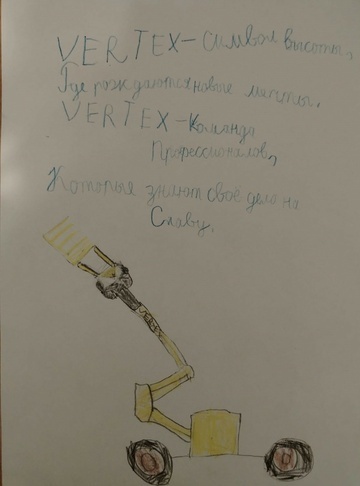 VERTEX - символ высоты,
Где рождаются новые мечты.
VERTEX - Команда
Профессионалов,
Которые знают своё дело на
Славу.